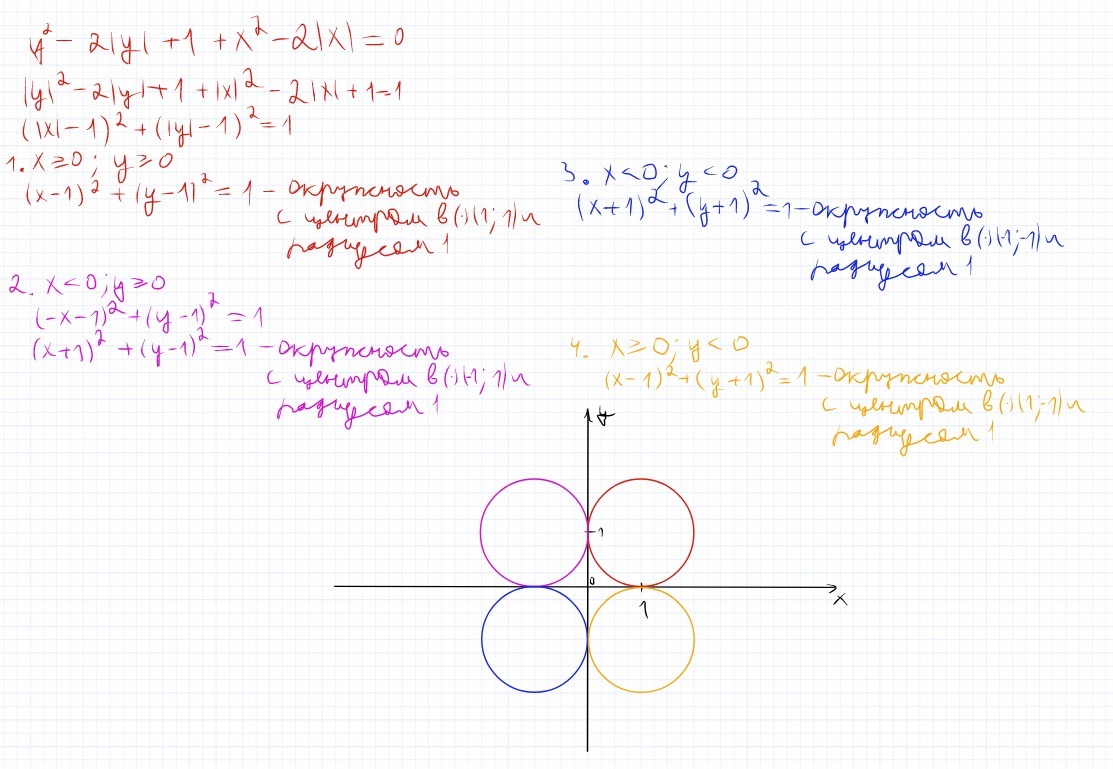 y² - 2|y| + 1 + x² - 2|x| = 0
|y|² - 2|y| + 1 + |x|² - 2|x| + 1 = 1
(|x| - 1)² + (|y| - 1)² = 1
1. x ≥ 0; y ≥ 0
(x - 1)² + (y - 1)² = 1 - окружность
с центром в (·)(1; 1) и
радиусом 1
2. x < 0; y ≥ 0
(-x - 1)² + (y - 1)² = 1
(x + 1)² + (y - 1)² = 1 - окружность
с центром в (·)(-1; 1) и
радиусом 1
3. x < 0; y < 0
(x + 1)² + (y + 1)² = 1 - окружность
с центром в (·)(-1; -1) и
радиусом 1
4. x ≥ 0; y < 0
(x - 1)² + (y + 1)² = 1 - окружность
с центром в (·)(1; -1) и
радиусом 1
y
1
0
1
x